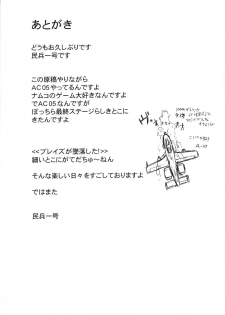 あとがき
どうもお久しぶりです
民兵一号です
この原稿やりながら
AC05やってるんですよ
ナムコのゲーム大好きなんですよ
でAC05なんですが
ぼっちら最終ステージらしきとこに
きたんですよ
<<ブレイズが墜落した!>>
細いとこにがてだちゅ～ねん
そんな楽しい日々をすごしておりますよ
ではまた
民兵一号